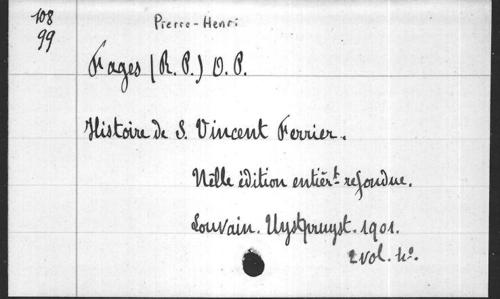 108
99
Pierre-Henri
Fages (R. P.) O. P.
Histoire de S. Vincent Ferrier.
Nelle édition entièrt refondue.
Louvain. Uystpruyst. 1901.
2 vol. 4º.